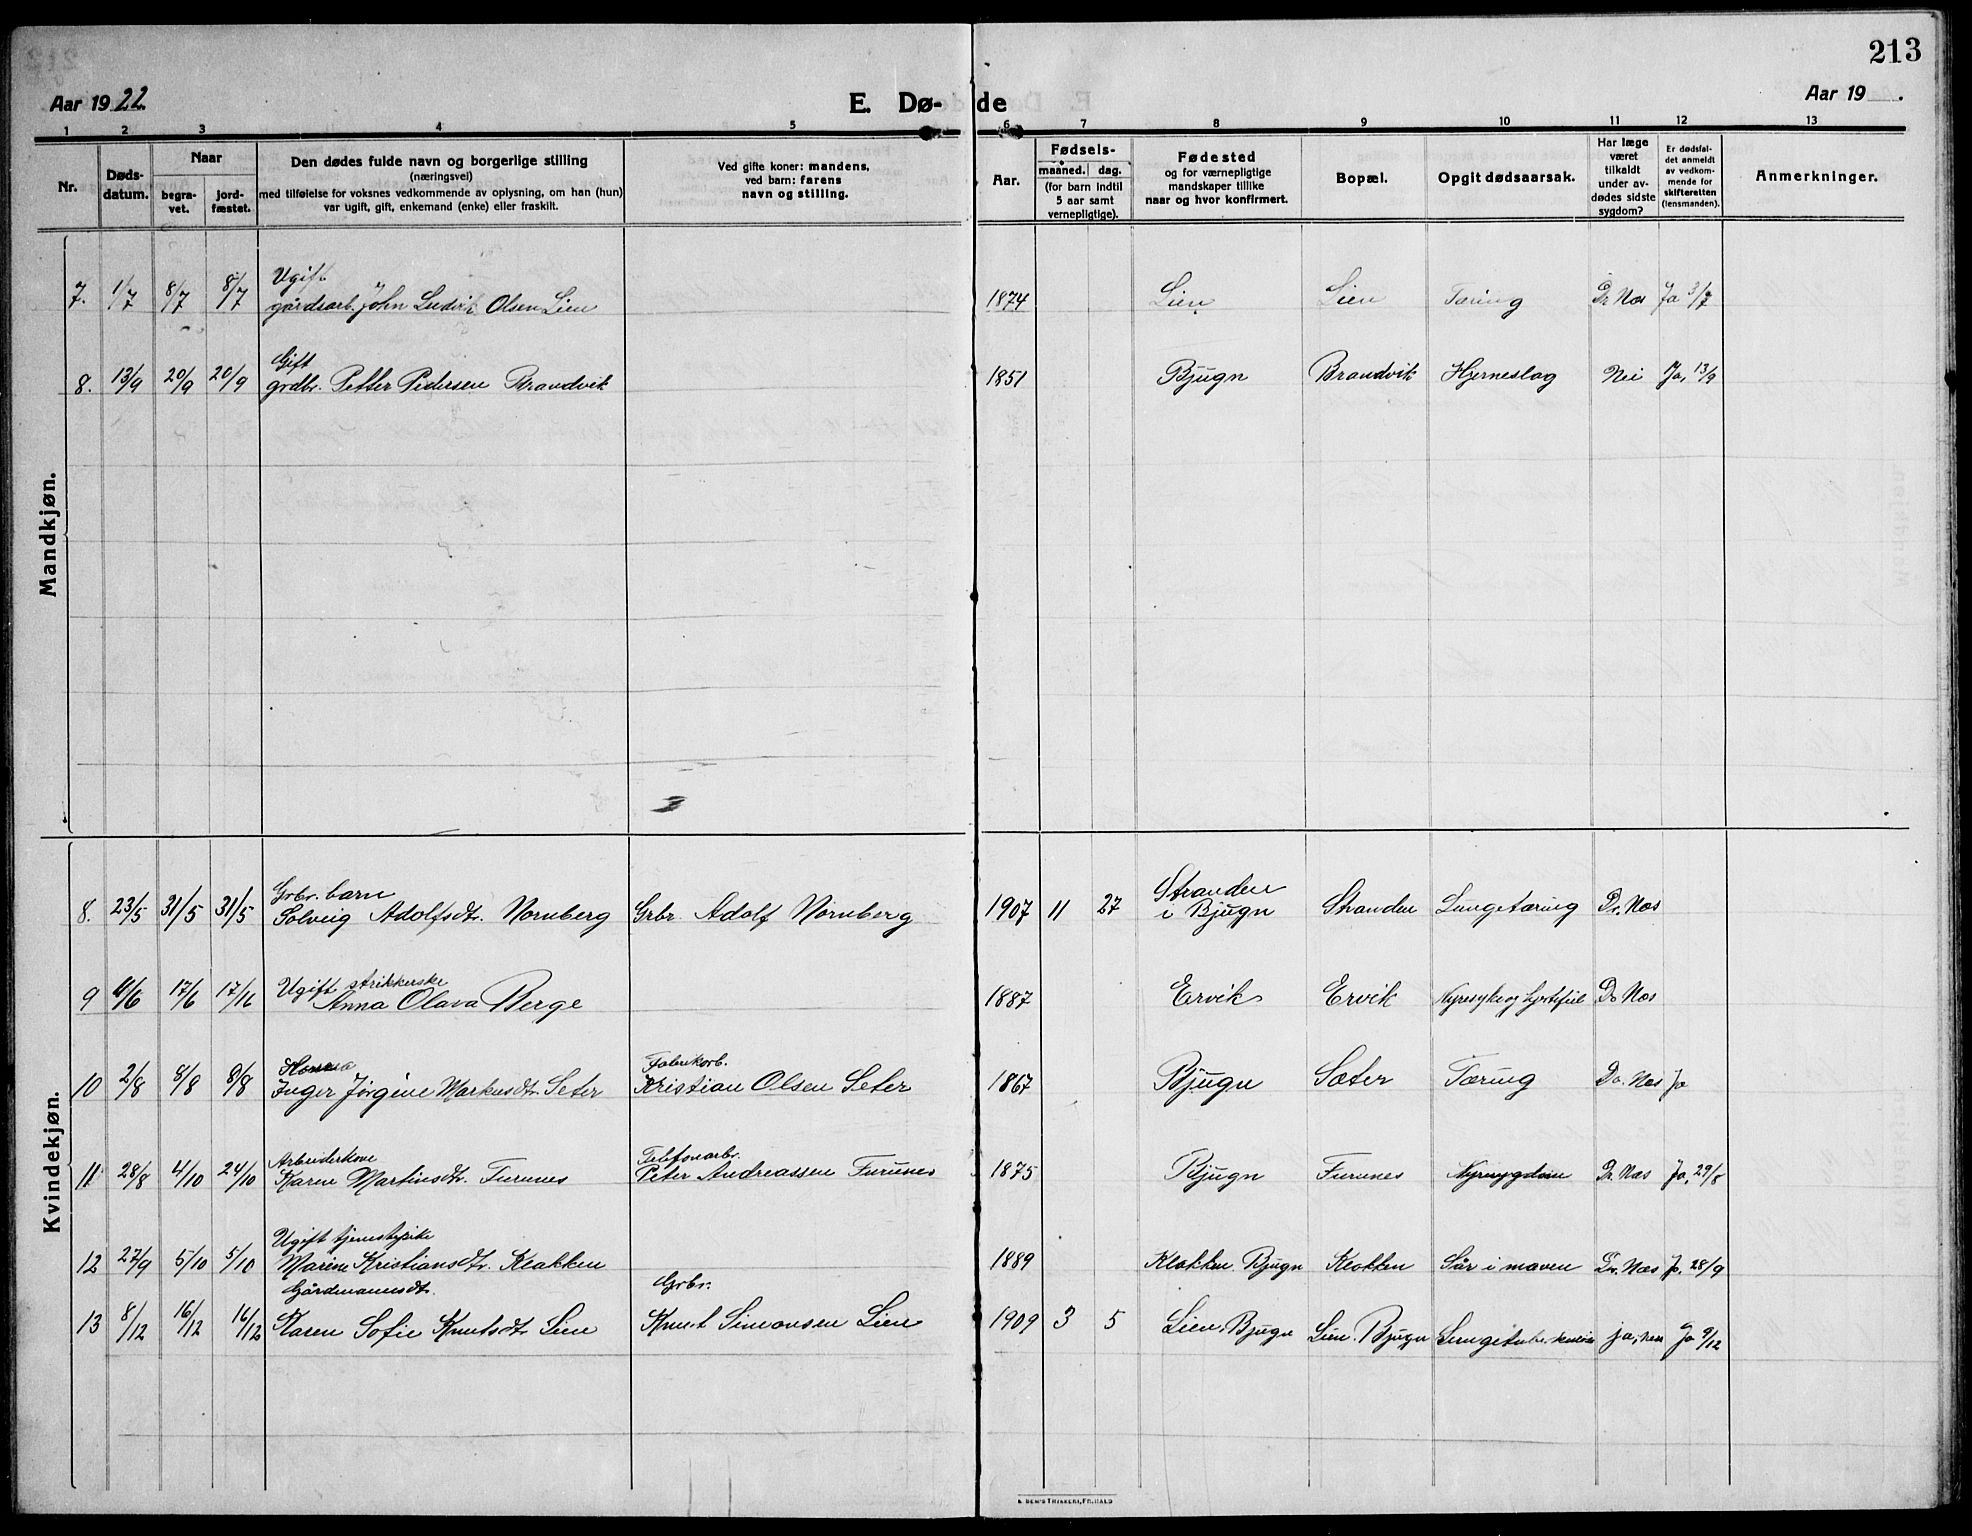 213
Aar 1922
E. Dø-
de
Aar 19 .
1 2 3 4 5 6 7 8 9 10 11 12 13
Nr.
Døds-
datum.
Naar
begra-
vet.
jord-
fæstet.
Den dødes fulde navn og borgerlige stilling
(næringsvei)
med tilføielse for voksnes vedkommende av oplysning, om han (hun)
var ugift, gift, enkemand (enke) eller fraskilt.
Ved gifte koner: mandens,
ved barn: farens
navn og stilling.
Aar.
Fødsels-
maaned. dag.
(for barn indtil
5 aar samt
vernepligtige).
Fødested
og for værnepligtige
mandskaper tillike
naar og hvor konfirmert.
Bopæl.
Opgit dødsaarsak.
Har læge
været
tilkaldt
under av-
dødes sidste
sygdom?
Er dødsfal-
det anmeldt
av vedkom-
mende for
skifteretten
(lensmanden).
Anmerkninger.
Mandkjøn.
Ugift
7. 1/7 8/7 8/7 gårdsarb. John Ludvik Olsen Lien 1874 Lien Lien Tæring Dr Næs Ja 3/7
Gift
8. 13/9 20/9 20/9 grdbr. Petter Pedersen Brandvik 1851 Bjugn Brandvik Hjerneslag Nei Ja, 13/9
Kvindekjøn.
Grbr. barn Stranden
8. 23/5 31/5 31/5 Solveig Adolfsdt. Nornberg Grbr Adolf Nornberg 1907 11 27 i Bjugn Stranden Lungetæring Dr. Næs
Ugift strikkerske
9 /6 17/6 17/16 Anna Olava Berge 1887 Ervik Ervik Nyresyke og hjertefeil Dr Næs
Fabrikarb.
10 2/8 8/8 8/8 Inger Jørgine Markusdt. Seter Kristian Olsen Seter 1867 Bjugn Sæter Tæring Dr. Næs Ja
Arbeiderkone Telefonarb.
11 28/8 4/10 24/10 Karen Martinsdt. Furunes Peter Andreassen Furunes 1875 Bjugn Furunes Nyresygdom Dr. Næs Ja, 29/8
Ugift tjenestepike
12 27/9 5/10 5/10 Marine Kristiansdt. Klakken 1889 Klakken. Bjugn Klakken Sår i maven Dr. Næs Ja. 28/9
Gårdmannsdt. Grbr.
13 8/12 16/12 16/12 Karen Sofie Knutsdt. Lien Knut Simonsen Lien 1909 3 5 Lien, Bjugn Lien. Bjugn Lungetuberkulose ja, Næs Ja 9/12